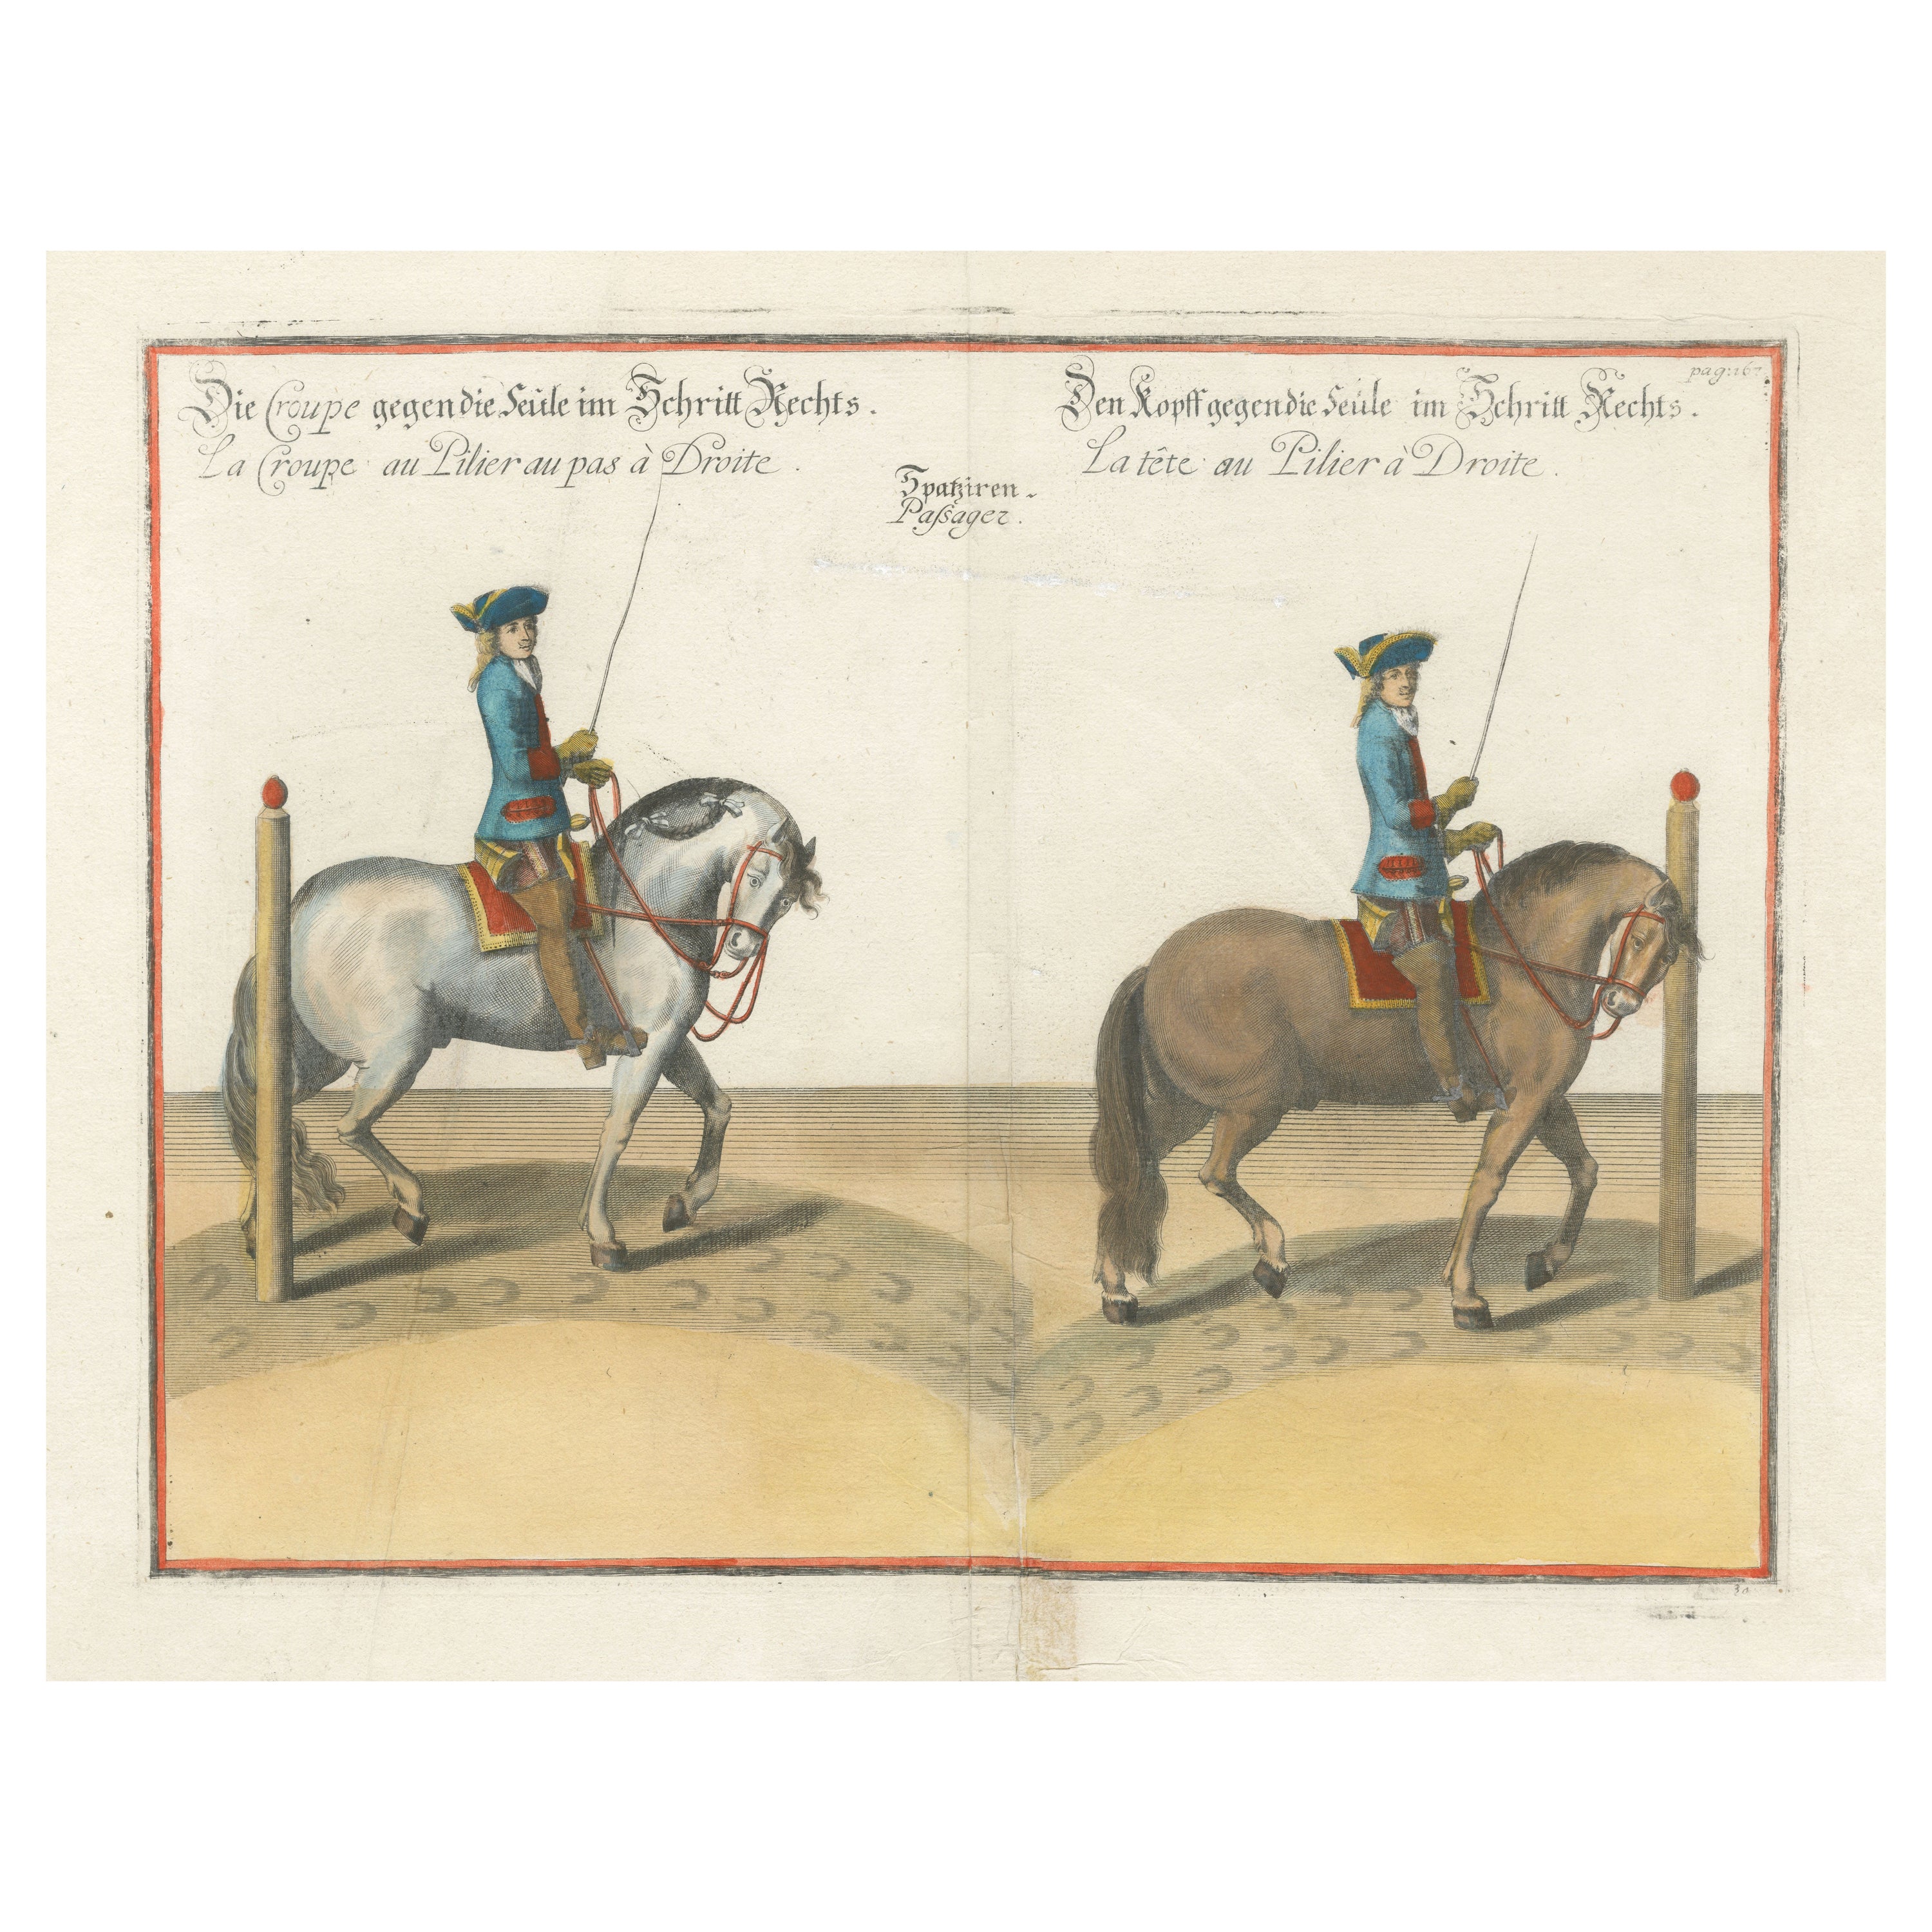 Die Croupe gegen die Seüle im Schritt Rechts.
La Croupe au Pilier au pas à Droite.
Spatziren.
Paſsager.
pag: 167.
Den Kopff gegen die Seüle im Schritt Rechts.
La tête au Pilier à Droite.
30